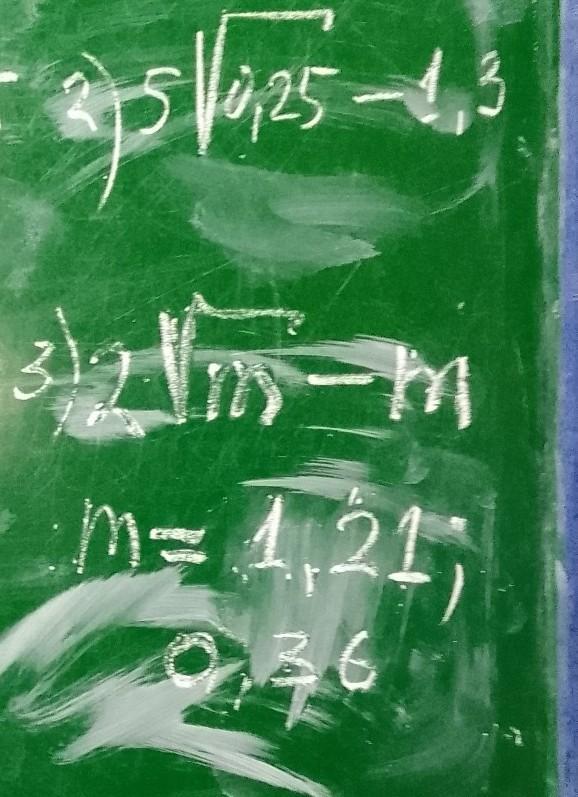 2) 5√0,25 - 1,3
3) 2√m - m
m = 1,21;
0,36